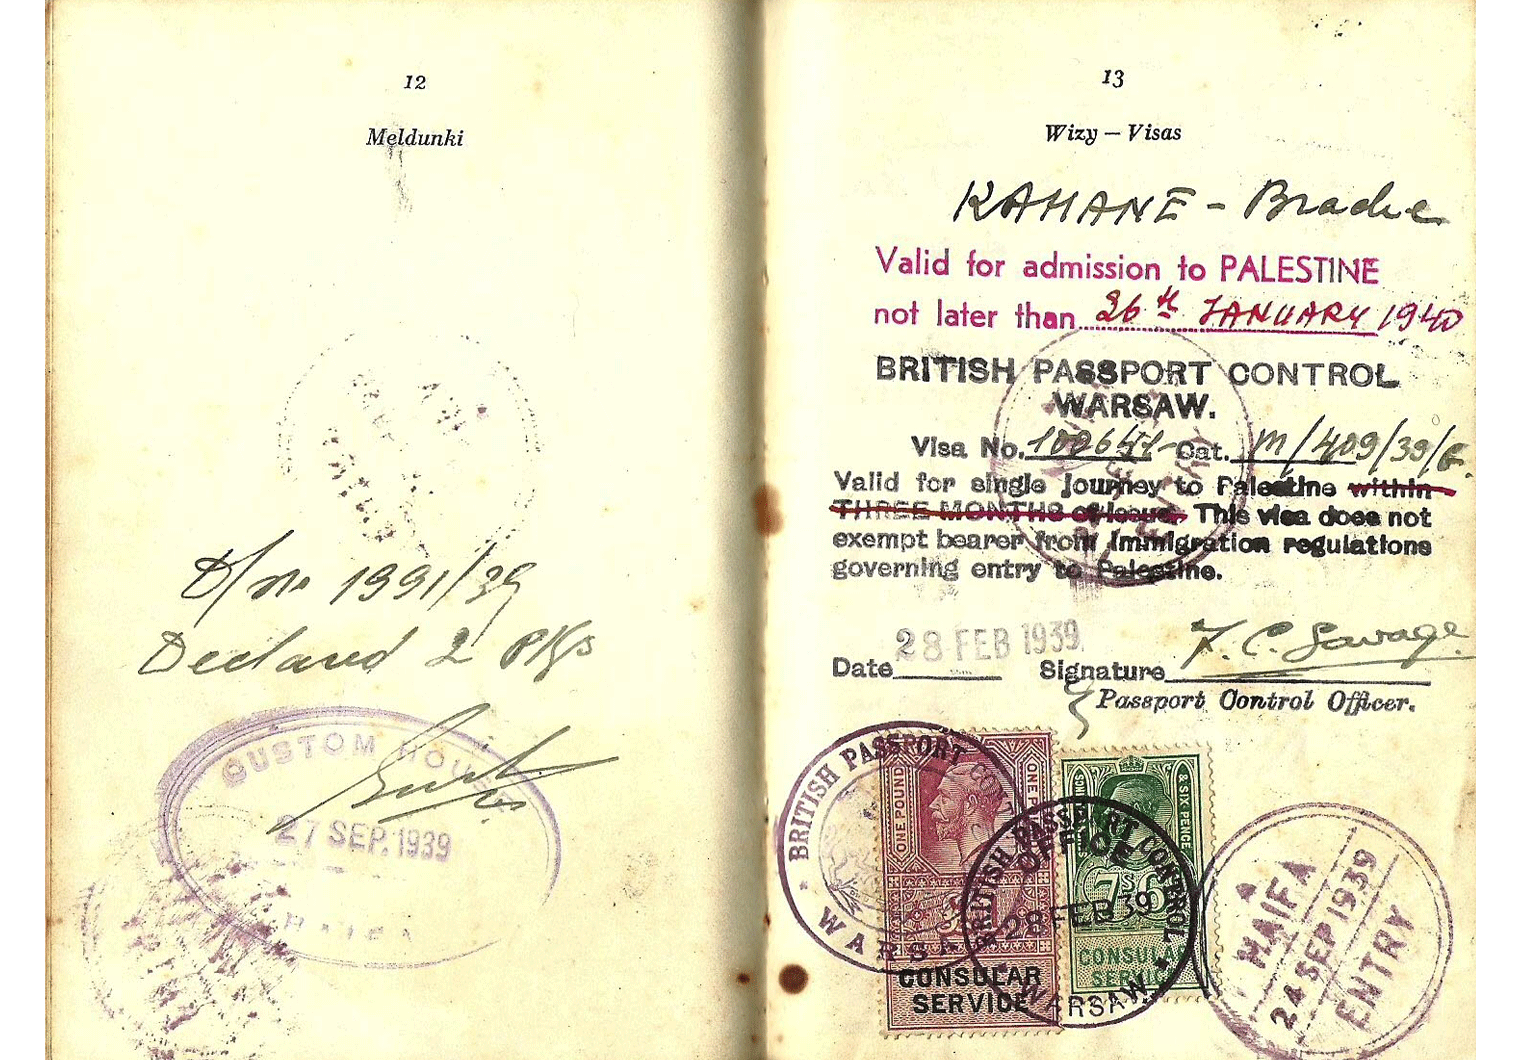 12
Meldunki
D/no 1991/39
Declared 2 pkgs
CUSTOM HOUSE
27 SEP. 1939
HAIFA
13
Wizy — Visas
KAHANE - Bradie
Valid for admission to PALESTINE
not later than 26th JANUARY 1940
BRITISH PASSPORT CONTROL
WARSAW.
Visa No. 100641 Cat. M/409/39/G
Valid for single journey to Palestine within
THREE MONTHS of issue. This visa does not
exempt bearer from Immigration regulations
governing entry to Palestine.
Date 28 FEB 1939 Signature F. C. Savage
Passport Control Officer.
BRITISH PASSPORT CONTROL
WARSAW
ONE POUND
CONSULAR
SERVICE
BRITISH PASSPORT CONTROL
OFFICE
28 FEB 39
WARSAW
& SIX PENCE
7s 6
CONSULAR
SERVICE
HAIFA
24 SEP 1939
ENTRY